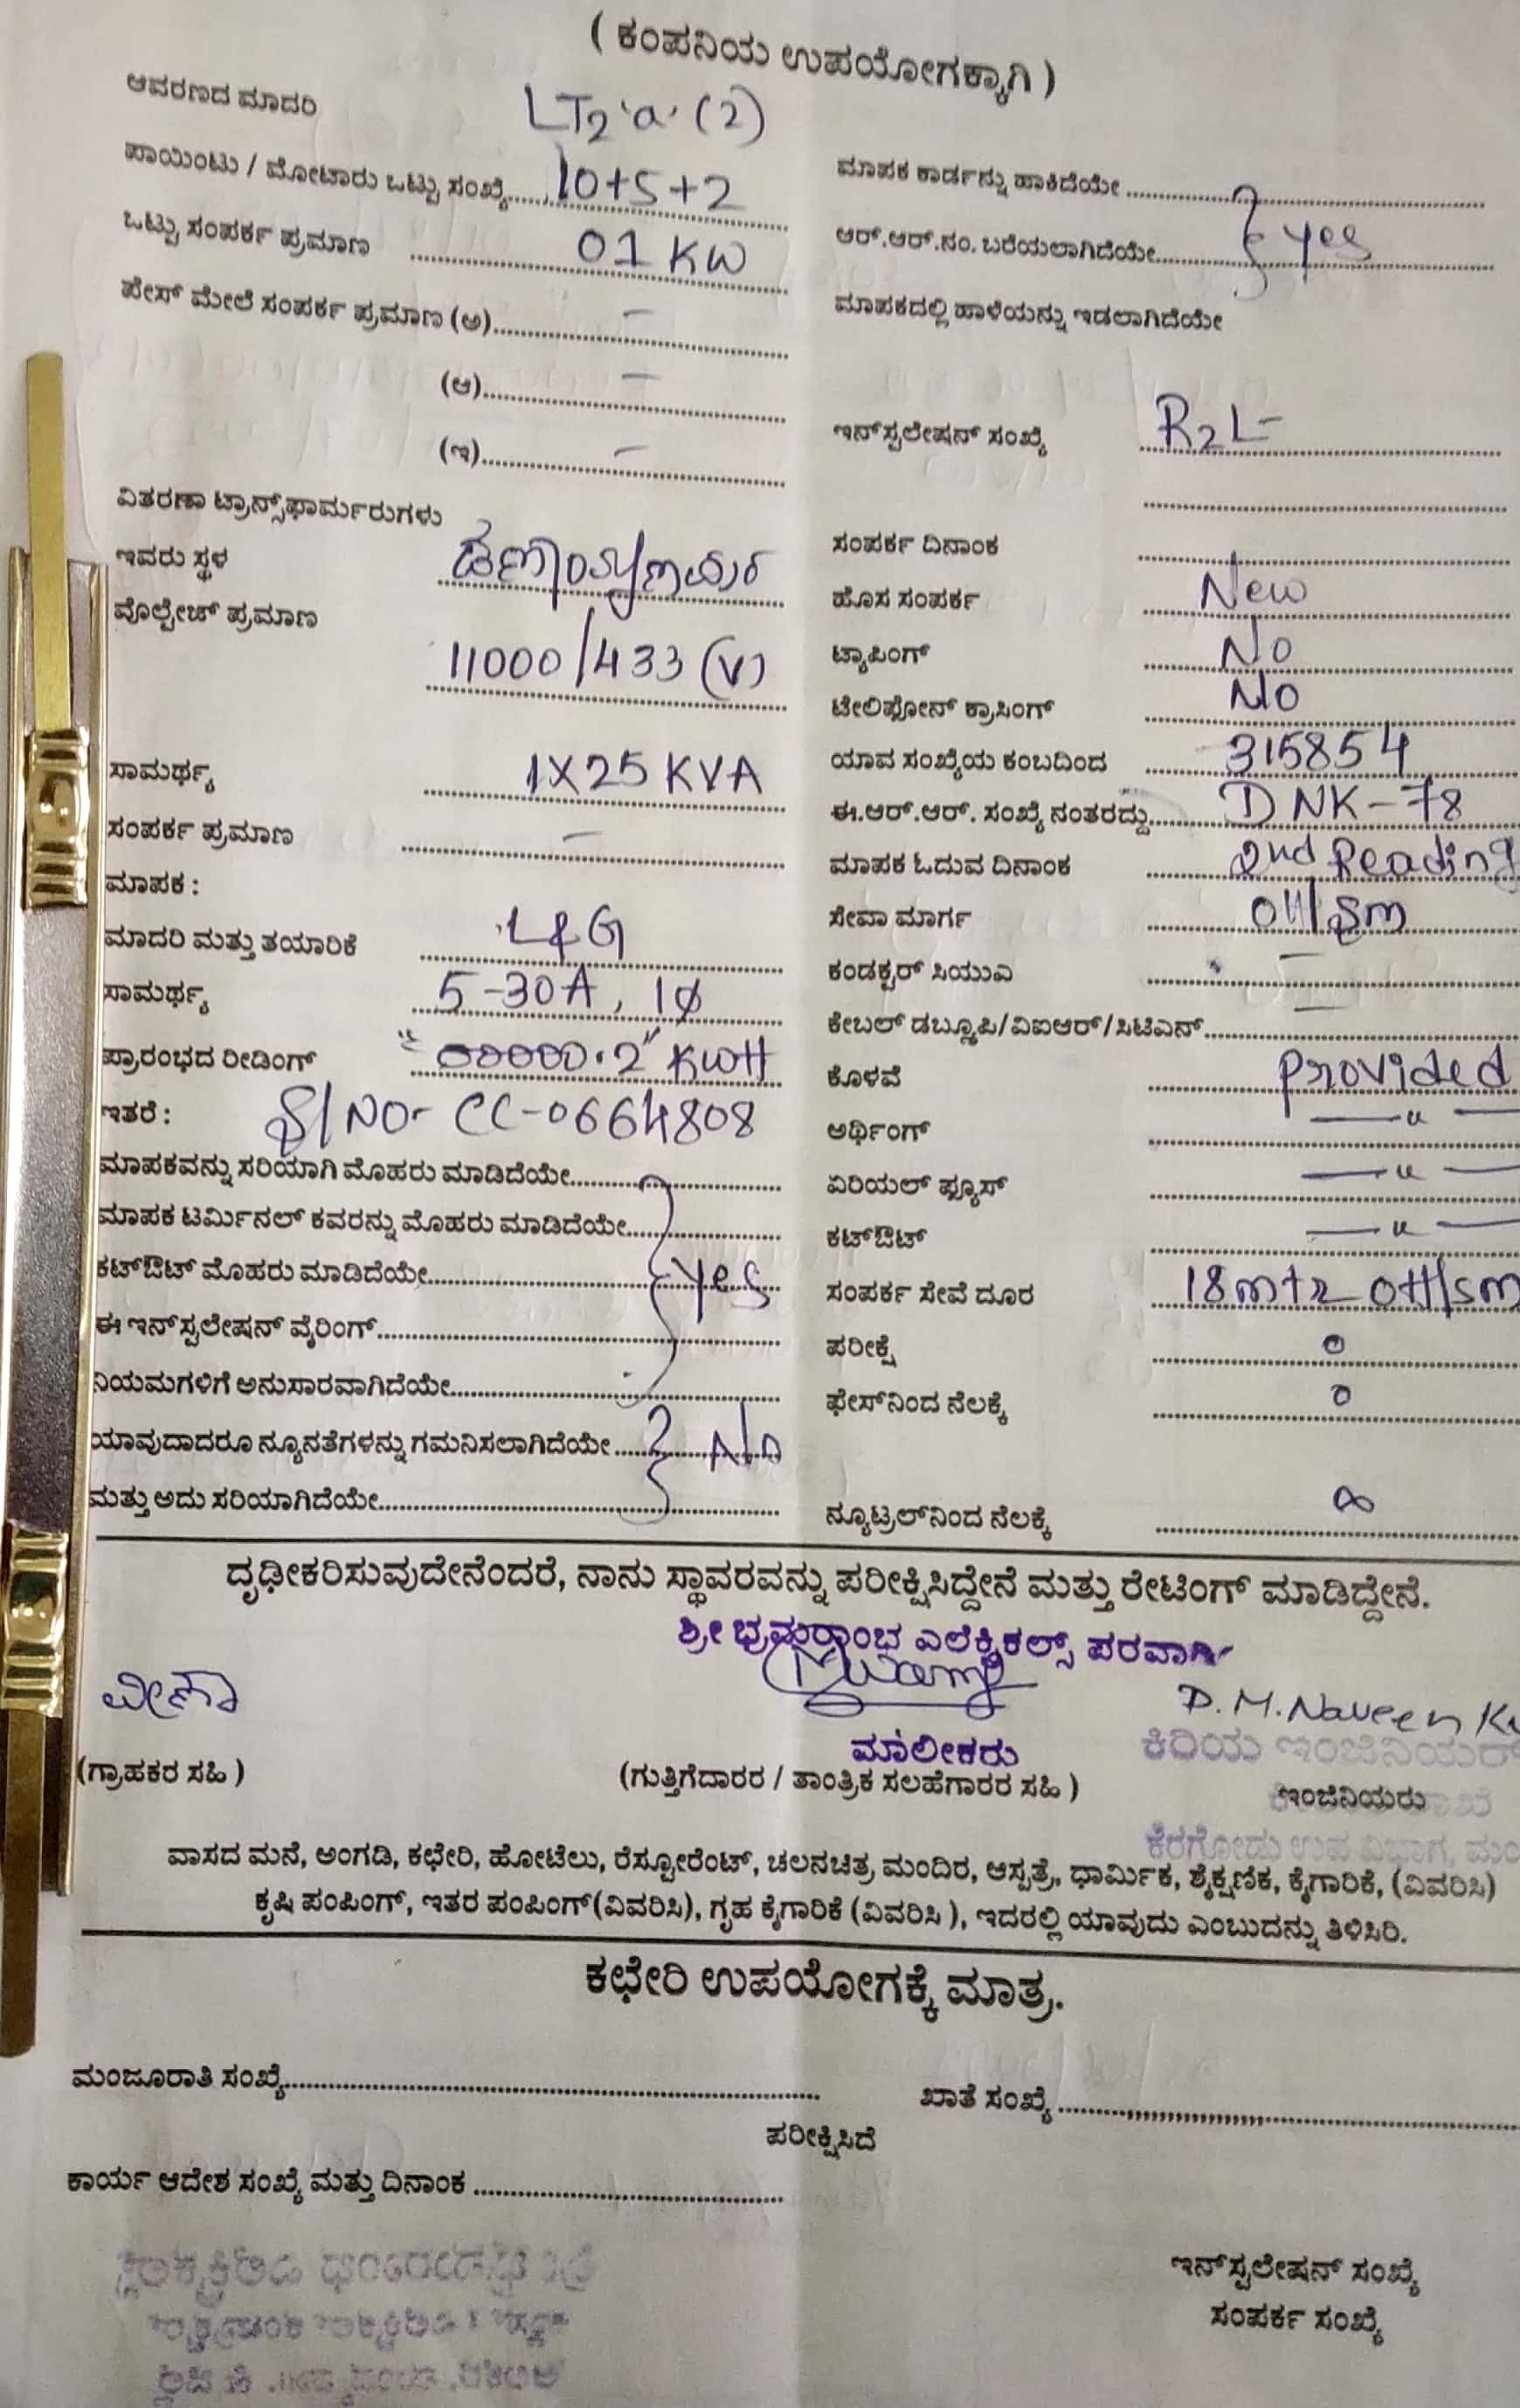 ( ಕಂಪನಿಯ ಉಪಯೋಗಕ್ಕಾಗಿ )
ಆವರಣದ ಮಾದರಿ LT2 'a' (2)
ಪಾಯಿಂಟು / ಮೋಟಾರು ಒಟ್ಟು ಸಂಖ್ಯೆ 10+5+2
ಒಟ್ಟು ಸಂಪರ್ಕ ಪ್ರಮಾಣ 01 KW
ಪೇಸ್ ಮೇಲೆ ಸಂಪರ್ಕ ಪ್ರಮಾಣ (ಅ) –
(ಆ) –
(ಇ) –
ವಿತರಣಾ ಟ್ರಾನ್ಸ್‌ಫಾರ್ಮರುಗಳು
ಇವರು ಸ್ಥಳ
ವೊಲ್ಟೇಜ್ ಪ್ರಮಾಣ
11000/433 (V)
ಸಾಮರ್ಥ್ಯ 1X25 KVA
ಸಂಪರ್ಕ ಪ್ರಮಾಣ –
ಮಾಪಕ :
ಮಾದರಿ ಮತ್ತು ತಯಾರಿಕೆ L&G
ಸಾಮರ್ಥ್ಯ 5-30A, 1φ
ಪ್ರಾರಂಭದ ರೀಡಿಂಗ್ "00000.2" KWH
ಇತರೆ : S/NO- CC-0664808
ಮಾಪಕವನ್ನು ಸರಿಯಾಗಿ ಮೊಹರು ಮಾಡಿದೆಯೇ
ಮಾಪಕ ಟರ್ಮಿನಲ್ ಕವರನ್ನು ಮೊಹರು ಮಾಡಿದೆಯೇ
ಕಟ್‌ಔಟ್ ಮೊಹರು ಮಾಡಿದೆಯೇ } yes
ಈ ಇನ್‌ಸ್ಪಲೇಷನ್ ವೈರಿಂಗ್
ನಿಯಮಗಳಿಗೆ ಅನುಸಾರವಾಗಿದೆಯೇ
ಯಾವುದಾದರೂ ನ್ಯೂನತೆಗಳನ್ನು ಗಮನಿಸಲಾಗಿದೆಯೇ } No
ಮತ್ತು ಅದು ಸರಿಯಾಗಿದೆಯೇ
ಮಾಪಕ ಕಾರ್ಡನ್ನು ಹಾಕಿದೆಯೇ
ಆರ್.ಆರ್.ನಂ. ಬರೆಯಲಾಗಿದೆಯೇ } yes
ಮಾಪಕದಲ್ಲಿ ಹಾಳೆಯನ್ನು ಇಡಲಾಗಿದೆಯೇ
ಇನ್‌ಸ್ಪಲೇಷನ್ ಸಂಖ್ಯೆ R2L-
ಸಂಪರ್ಕ ದಿನಾಂಕ
ಹೊಸ ಸಂಪರ್ಕ New
ಟ್ಯಾಪಿಂಗ್ No
ಟೇಲಿಫೋನ್ ಕ್ರಾಸಿಂಗ್ No
ಯಾವ ಸಂಖ್ಯೆಯ ಕಂಬದಿಂದ 315854
ಈ.ಆರ್.ಆರ್. ಸಂಖ್ಯೆ ನಂತರದ್ದು DNK-78
ಮಾಪಕ ಓದುವ ದಿನಾಂಕ 2nd Reading
ಸೇವಾ ಮಾರ್ಗ OH/Sm
ಕಂಡಕ್ಟರ್ ಸಿಯುಎ –
ಕೇಬಲ್ ಡಬ್ಲ್ಯೂಪಿ/ವಿಐಆರ್/ಸಿಟಿಎನ್ –
ಕೊಳವೆ Provided
ಅರ್ಥಿಂಗ್ — " —
ಏರಿಯಲ್ ಫ್ಯೂಸ್ — " —
ಕಟ್‌ಔಟ್ — " —
ಸಂಪರ್ಕ ಸೇವೆ ದೂರ 18mtr OH/Sm
ಪರೀಕ್ಷೆ 0
ಫೇಸ್‌ನಿಂದ ನೆಲಕ್ಕೆ 0
ನ್ಯೂಟ್ರಲ್‌ನಿಂದ ನೆಲಕ್ಕೆ ∞
ದೃಢೀಕರಿಸುವುದೇನೆಂದರೆ, ನಾನು ಸ್ಥಾವರವನ್ನು ಪರೀಕ್ಷಿಸಿದ್ದೇನೆ ಮತ್ತು ರೇಟಿಂಗ್ ಮಾಡಿದ್ದೇನೆ.
ಶ್ರೀ ಭ್ರಮರಾಂಭ ಎಲೆಕ್ಟ್ರಿಕಲ್ಸ್ ಪರವಾಗಿ
ವೀಣಾ D.M. Naveen
ಮಾಲೀಕರು ಕಿರಿಯ ಇಂಜಿನಿಯರ್
(ಗ್ರಾಹಕರ ಸಹಿ ) (ಗುತ್ತಿಗೆದಾರರ / ತಾಂತ್ರಿಕ ಸಲಹೆಗಾರರ ಸಹಿ ) ಇಂಜಿನಿಯರು
ಕೆರಗೋಡು ಉಪ ವಿಭಾಗ,
ವಾಸದ ಮನೆ, ಅಂಗಡಿ, ಕಛೇರಿ, ಹೋಟೆಲು, ರೆಸ್ಟೋರೆಂಟ್, ಚಲನಚಿತ್ರ ಮಂದಿರ, ಆಸ್ಪತ್ರೆ, ಧಾರ್ಮಿಕ, ಶೈಕ್ಷಣಿಕ, ಕೈಗಾರಿಕೆ, (ವಿವರಿಸಿ)
ಕೃಷಿ ಪಂಪಿಂಗ್, ಇತರ ಪಂಪಿಂಗ್(ವಿವರಿಸಿ), ಗೃಹ ಕೈಗಾರಿಕೆ (ವಿವರಿಸಿ ), ಇದರಲ್ಲಿ ಯಾವುದು ಎಂಬುದನ್ನು ತಿಳಿಸಿರಿ.
ಕಛೇರಿ ಉಪಯೋಗಕ್ಕೆ ಮಾತ್ರ.
ಮಂಜೂರಾತಿ ಸಂಖ್ಯೆ ಖಾತೆ ಸಂಖ್ಯೆ
ಪರೀಕ್ಷಿಸಿದೆ
ಕಾರ್ಯ ಆದೇಶ ಸಂಖ್ಯೆ ಮತ್ತು ದಿನಾಂಕ
ಇನ್‌ಸ್ಪಲೇಷನ್ ಸಂಖ್ಯೆ
ಸಂಪರ್ಕ ಸಂಖ್ಯೆ